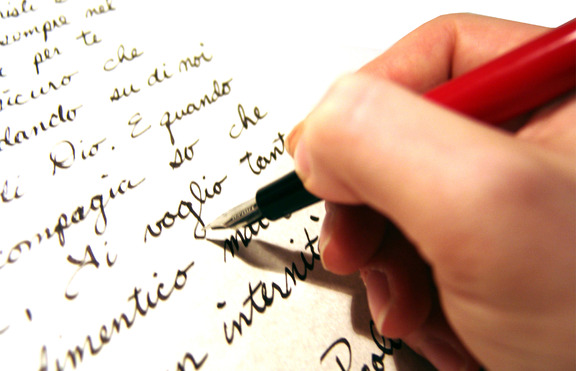 sempre nel
per te
sicuro che
dando su di noi
di Dio. E quando
compagia so che
, Ti voglio tant
dimentico mai
in internit
Paol